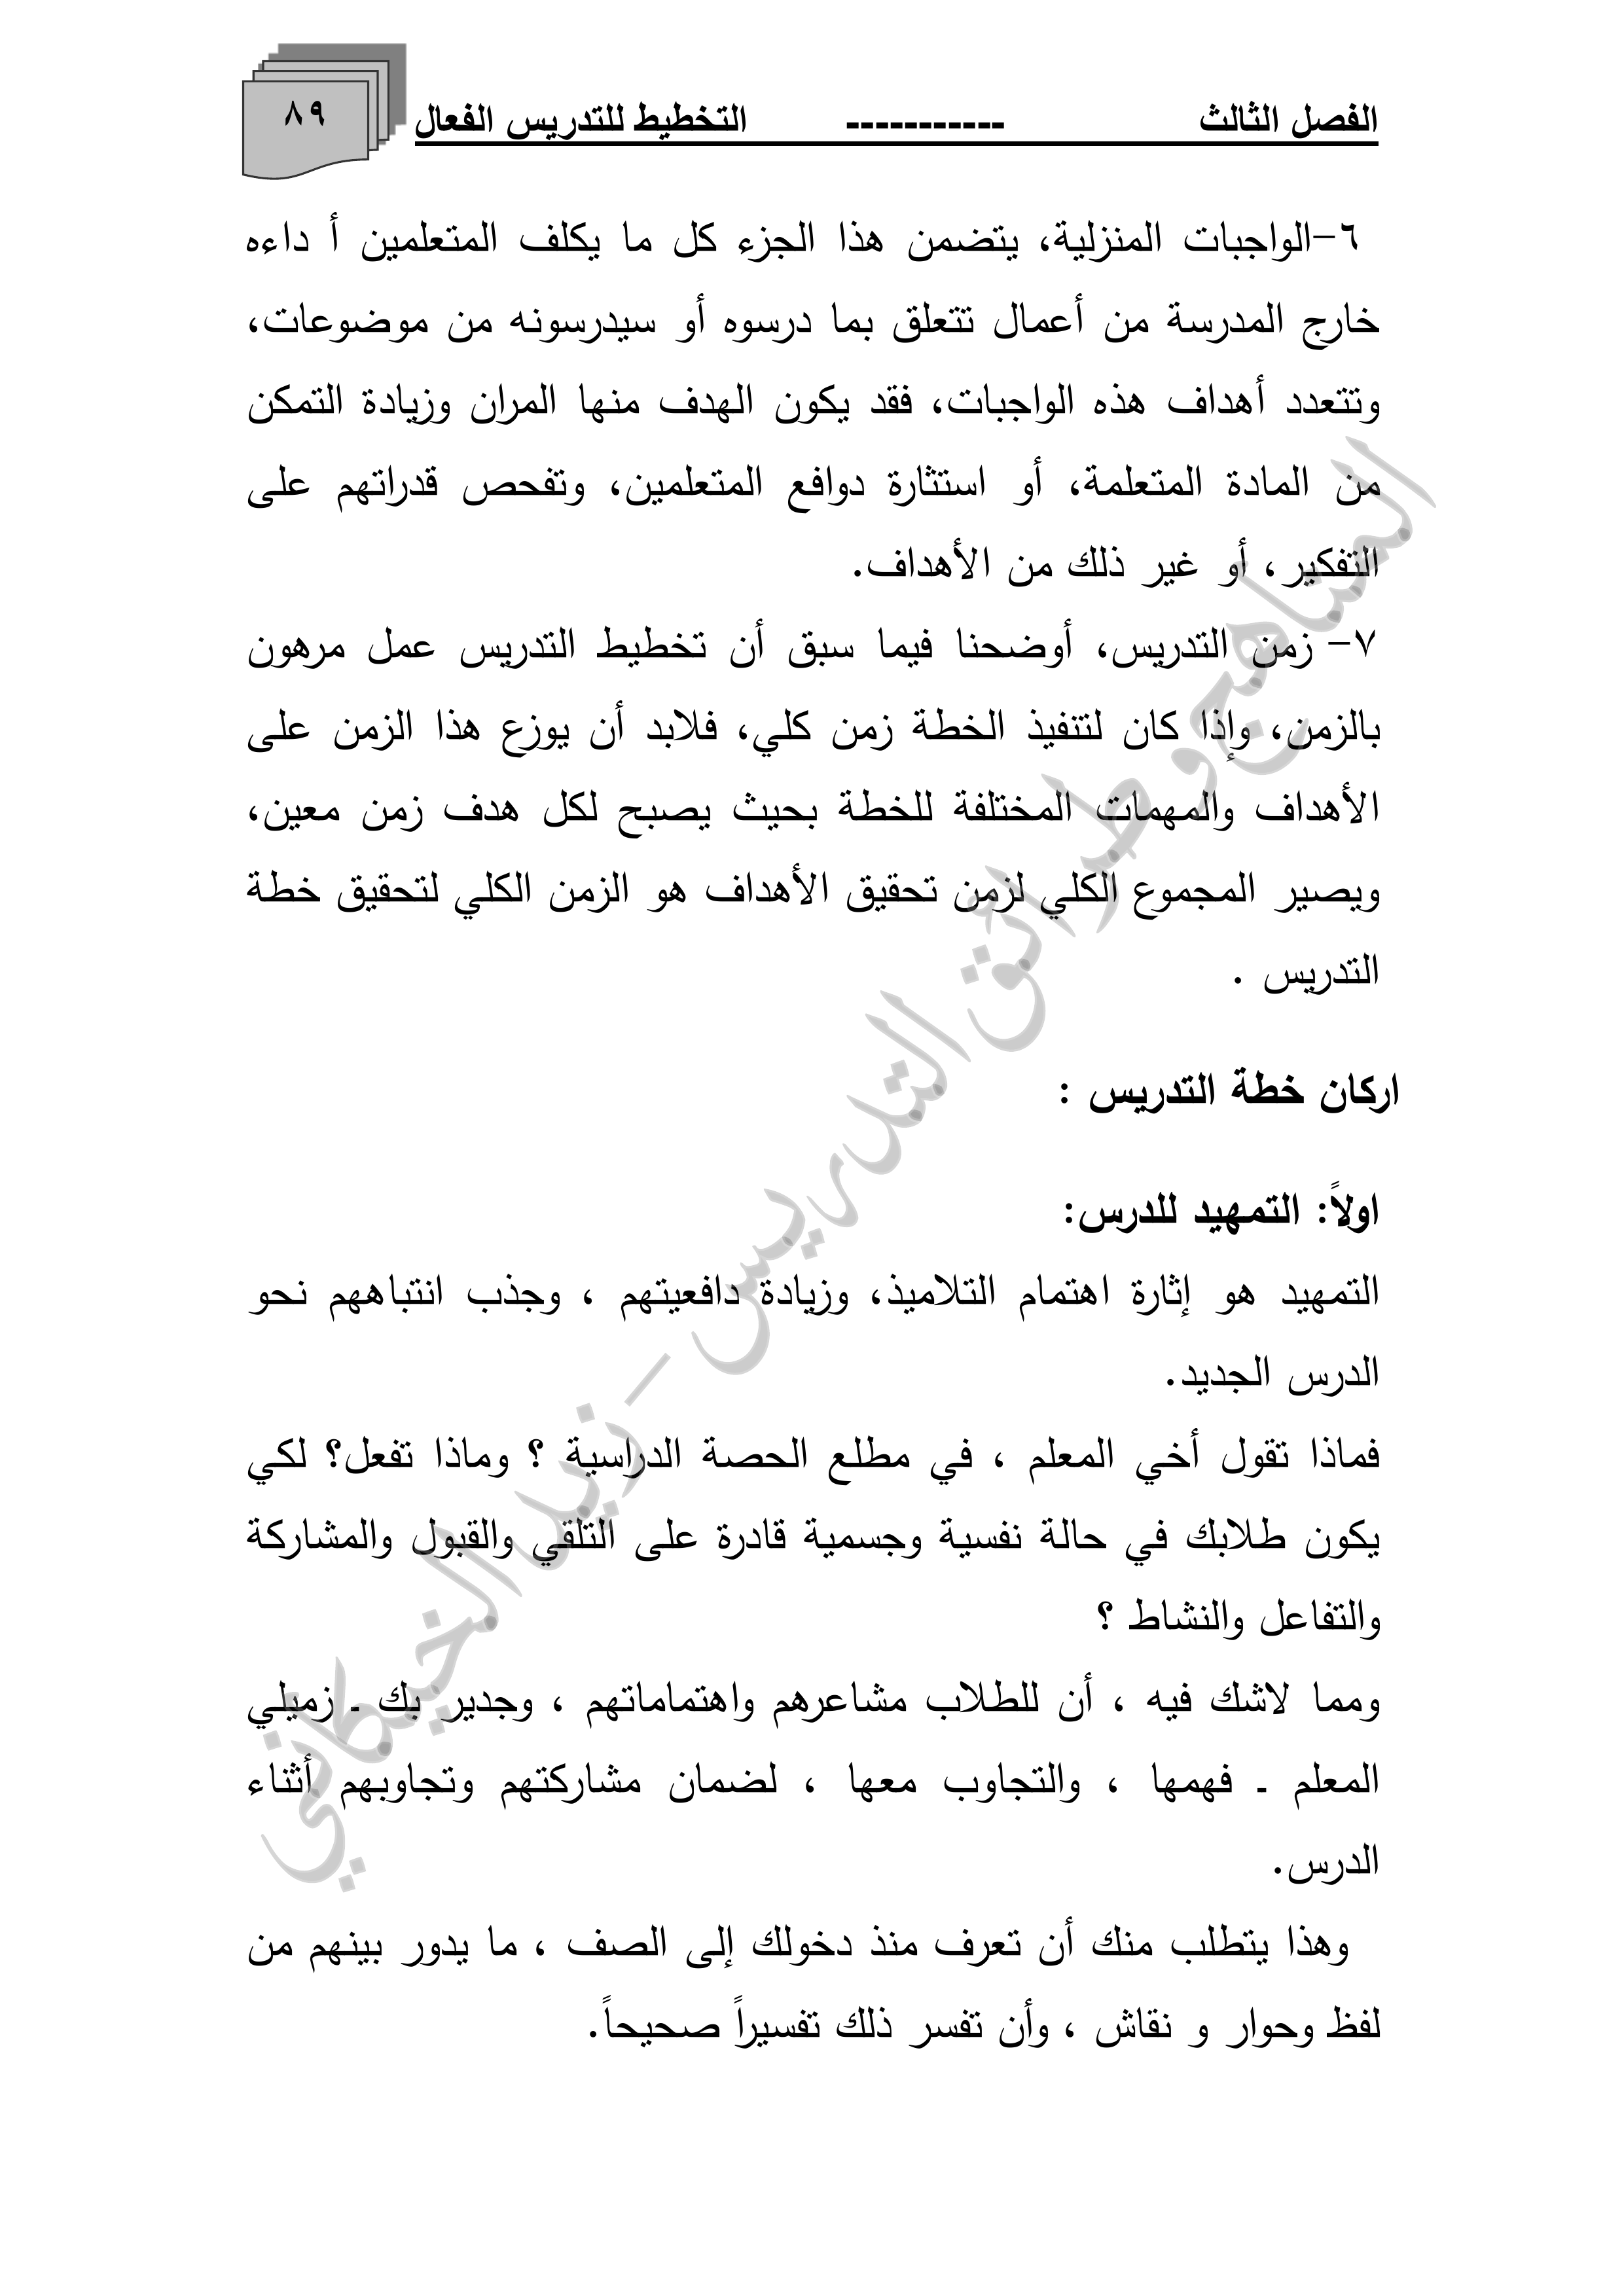 الفصل الثالث ----------- التخطيط للتدريس الفعال
٨٩
٦-الواجبات المنزلية، يتضمن هذا الجزء كل ما يكلف المتعلمين أ داءه
خارج المدرسة من أعمال تتعلق بما درسوه أو سيدرسونه من موضوعات،
وتتعدد أهداف هذه الواجبات، فقد يكون الهدف منها المران وزيادة التمكن
من المادة المتعلمة، أو استثارة دوافع المتعلمين، وتفحص قدراتهم على
التفكير، أو غير ذلك من الأهداف.
٧- زمن التدريس، أوضحنا فيما سبق أن تخطيط التدريس عمل مرهون
بالزمن، وإذا كان لتنفيذ الخطة زمن كلي، فلابد أن يوزع هذا الزمن على
الأهداف والمهمات المختلفة للخطة بحيث يصبح لكل هدف زمن معين،
ويصير المجموع الكلي لزمن تحقيق الأهداف هو الزمن الكلي لتحقيق خطة
التدريس .
اركان خطة التدريس :
اولاً: التمهيد للدرس:
التمهيد هو إثارة اهتمام التلاميذ، وزيادة دافعيتهم ، وجذب انتباههم نحو
الدرس الجديد.
فماذا تقول أخي المعلم ، في مطلع الحصة الدراسية ؟ وماذا تفعل؟ لكي
يكون طلابك في حالة نفسية وجسمية قادرة على التلقي والقبول والمشاركة
والتفاعل والنشاط ؟
ومما لاشك فيه ، أن للطلاب مشاعرهم واهتماماتهم ، وجدير بك ـ زميلي
المعلم ـ فهمها ، والتجاوب معها ، لضمان مشاركتهم وتجاوبهم أثناء
الدرس.
وهذا يتطلب منك أن تعرف منذ دخولك إلى الصف ، ما يدور بينهم من
لفظ وحوار و نقاش ، وأن تفسر ذلك تفسيراً صحيحاً.
المناهج وطرائق التدريس - زيد الخيكاني